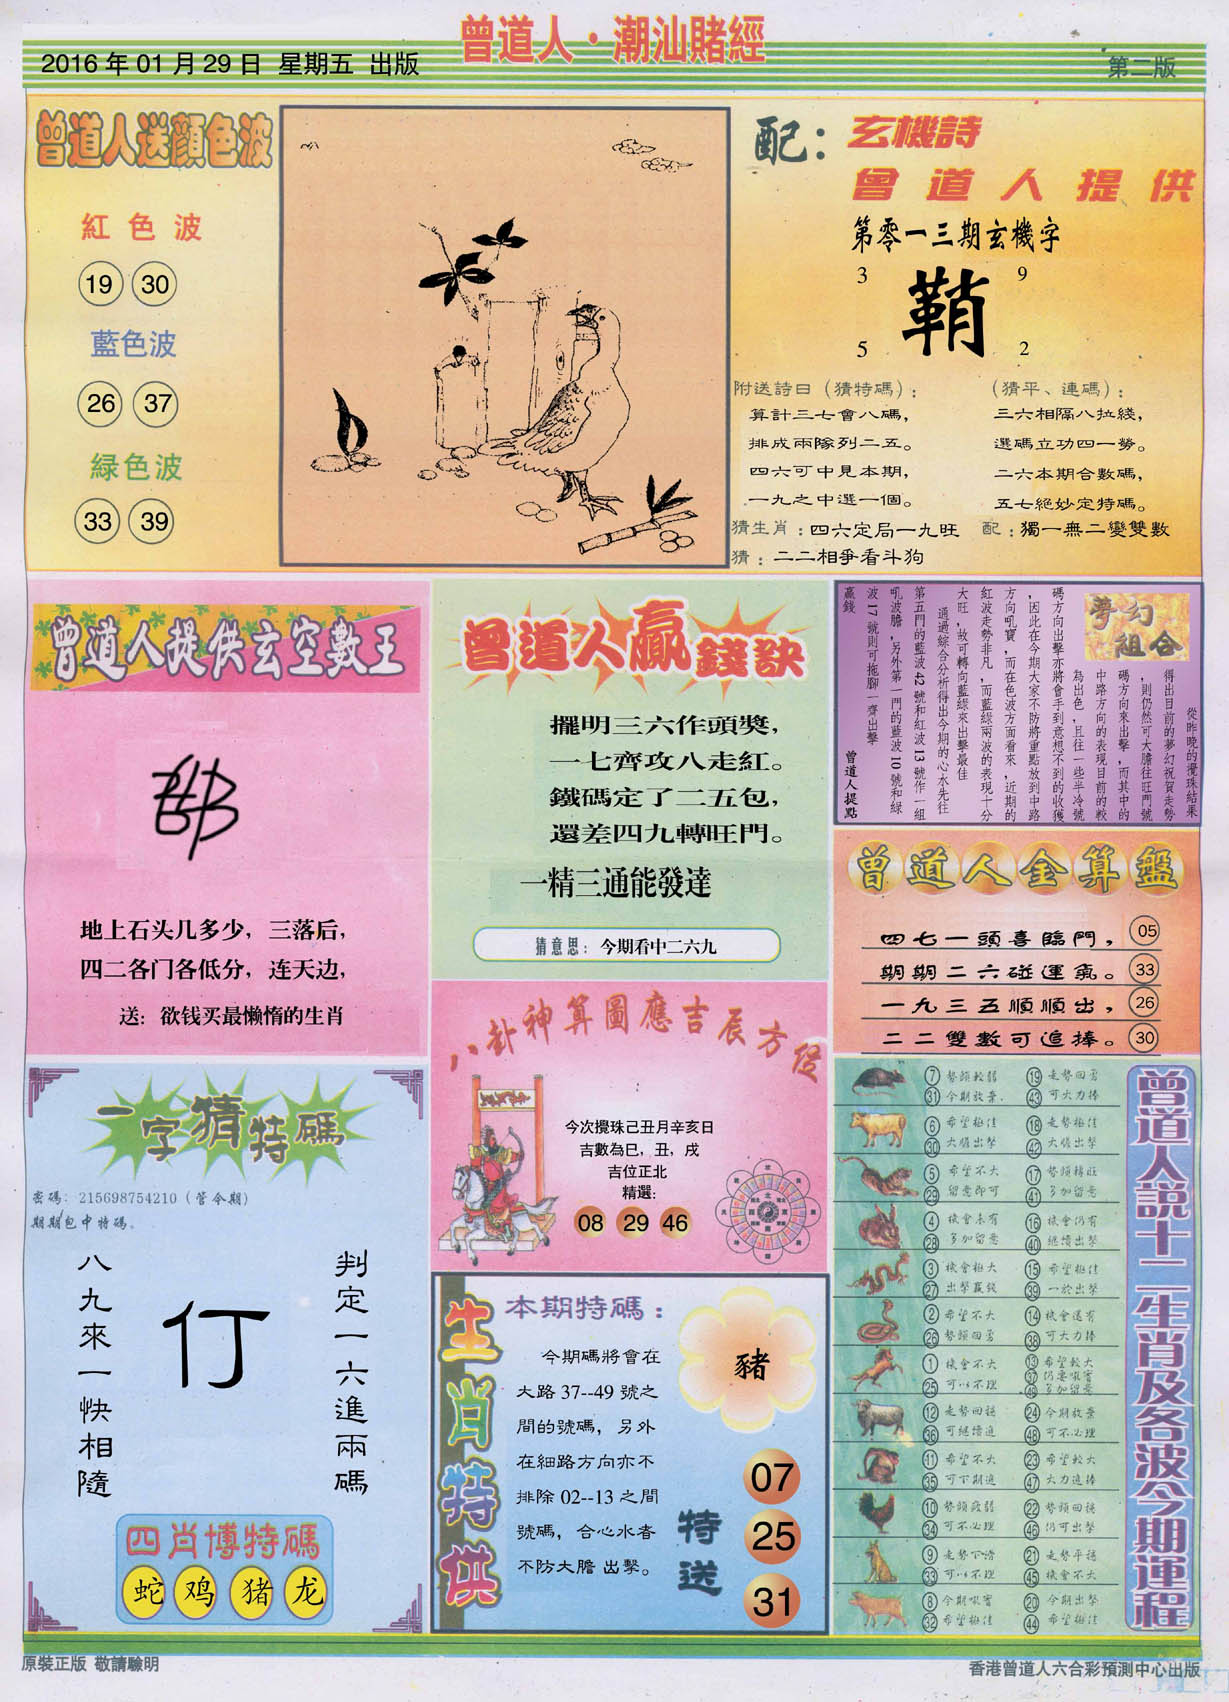 曾道人·潮汕賭經
2016年01月29日 星期五 出版
第二版
曾道人送顏色波
紅色波
19 30
藍色波
26 37
緑色波
33 39
配：玄機詩
曾道人提供
第零一三期玄機字
3 9
鞘
5 2
附送詩曰（猜特碼）：
算計三七會八碼，
排成兩隊列二五。
四六可中見本期，
一九之中選一個。
（猜平、連碼）：
三六相隔八拉綫，
選碼立功四一勞。
二六本期合數碼，
五七絕妙定特碼。
猜生肖：四六定局一九旺 配：獨一無二變雙數
猜：二二相爭看斗狗
曾道人提供玄空數王
地上石头几多少，三落后，
四二各门各低分，连天边，
送：欲钱买最懒惰的生肖
曾道人贏錢訣
擺明三六作頭獎，
一七齊攻八走紅。
鐵碼定了二五包，
還差四九轉旺門。
一精三通能發達
猜意思：今期看中二六九
夢幻組合
從昨晚的攪珠結果
得出目前的夢幻祝賀走勢
，則仍然可大膽往旺門號
碼方向來出擊，而其中的
中路方向的表現目前的較
為出色，且往一些半冷號
碼方向出擊亦將會手到意想不到的收獲
，因此在今期大家不防將重點放到中路
方向吼寶，而在色波方面看來，近期的
紅波走勢非凡，而藍綠兩波的表現十分
大旺，故可轉向藍綠來出擊最佳
通過綜合分析得出今期的心水先往
第五門的藍波42號和紅波13號作一組
吼波膽，另外第一門的藍波10號和綠
波17號則可拖腳一齊出擊
贏錢
曾道人提點
曾道人金算盤
四七一頭喜臨門， 05
期期二六碰運氣。 33
一九三五順順出， 26
二二雙數可追捧。 30
八卦神算圖應吉辰方位
今次攪珠己丑月辛亥日
吉數為巳，丑，戌
吉位正北
精選：
08 29 46
一字猜特碼
密碼：215698754210（管令期）
期期包中特碼。
八九來一快相隨
仃
判定一六進兩碼
四肖博特碼
蛇 鸡 猪 龙
生肖特供
本期特碼：
今期碼將會在
大路37--49號之
間的號碼，另外
在細路方向亦不
排除02--13之間
號碼，合心水者
不防大膽出擊。
豬
特送
07
25
31
曾道人説十二生肖及各波今期運程
7 勢頭較弱 19 走勢回勇
31 今期放棄. 43 可大力捧
6 希望極佳 18 走勢極佳
30 大膽出擊 42 大膽出擊
5 希望不大 17 勢頭轉旺
29 留意即可 41 多加留意
4 機會未有 16 機會仍有
28 多加留意 40 繼續出擊
3 機會極大 15 希望極佳
27 出擊贏錢 39 一於出擊
2 希望不大 14 機會還有
26 勢頭回勇 38 可大力捧
1 機會不大 13 希望較大
25 可以不理 37 仍要吼實
49 多加留意
12 走勢回穩 24 今期放棄
36 可繼續追 48 可不必理
11 希望不大 23 希望較大
35 可下期追 47 大力追捧
10 勢頭疲弱 22 勢頭回穩
34 可不必理 46 仍可出擊
9 走勢下滑 21 走勢平穩
33 可以不理 45 機會不大
8 今期吼實 20 今期出擊
32 希望極佳 44 希望極佳
原裝正版 敬請驗明
香港曾道人六合彩預測中心出版